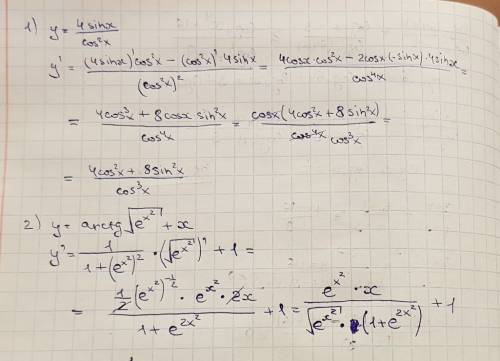 1) y = 4sinx / cos²x
y' = ((4sinx)'cos²x − (cos²x)'·4sinx) / (cos²x)² = (4cosx·cos²x − 2cosx·(−sinx)·4sinx) / cos⁴x =
= (4cos³x + 8cosx sin²x) / cos⁴x = cosx(4cos²x + 8sin²x) / cos⁴x cos³x =
= (4cos²x + 8sin²x) / cos³x
2) y = arctg√(e^(x²)) + x
y' = 1 / (1 + (e^(x²))²) · (√(e^(x²)))' + 1 =
= (1/2 (e^(x²))^(−1/2) · e^(x²) · 2x) / (1 + e^(2x²)) + 1 = (e^(x²) · x) / (√(e^(x²)) · (1 + e^(2x²))) + 1